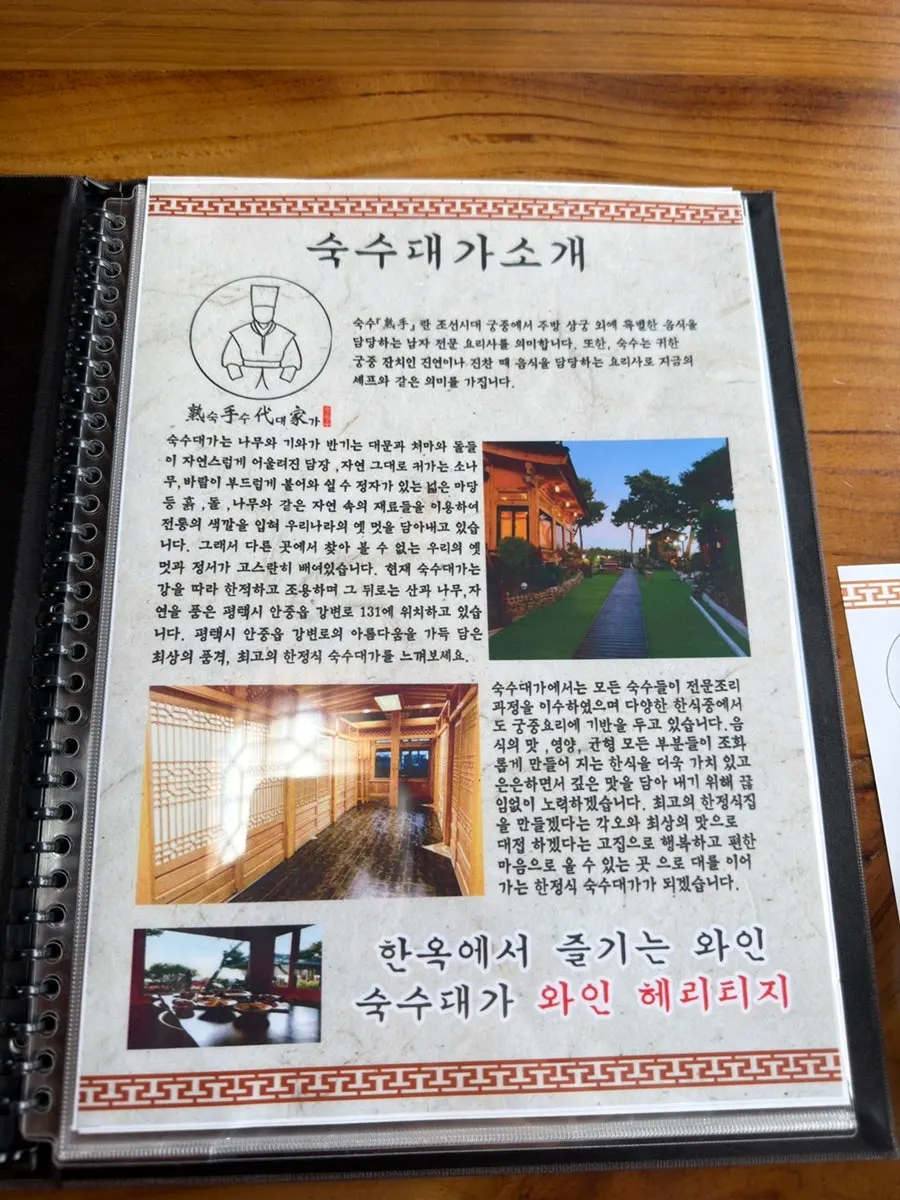 숙수대가소개
숙수『熟手』란 조선시대 궁중에서 주방 상궁 외에 특별한 음식을
담당하는 남자 전문 요리사를 의미합니다. 또한, 숙수는 귀한
궁중 잔치인 진연이나 진찬 때 음식을 담당하는 요리사로 지금의
셰프와 같은 의미를 가집니다.
熟숙手수代대家가
숙수대가는 나무와 기와가 반기는 대문과 처마와 돌들
이 자연스럽게 어울러진 담장 ,자연 그대로 커가는 소나
무,바람이 부드럽게 불어와 쉴 수 정자가 있는 넓은 마당
등 흙 ,돌 ,나무와 같은 자연 속의 재료들을 이용하여
전통의 색깔을 입혀 우리나라의 옛 멋을 담아내고 있습
니다. 그래서 다른 곳에서 찾아 볼 수 없는 우리의 옛
멋과 정서가 고스란히 배여있습니다. 현재 숙수대가는
강을 따라 한적하고 조용하며 그 뒤로는 산과 나무,자
연을 품은 평택시 안중읍 강변로 131에 위치하고 있습
니다. 평택시 안중읍 강변로의 아름다움을 가득 담은
최상의 품격, 최고의 한정식 숙수대가를 느껴보세요.
숙수대가에서는 모든 숙수들이 전문조리
과정을 이수하였으며 다양한 한식중에서
도 궁중요리에 기반을 두고 있습니다.음
식의 맛 ,영양, 균형 모든 부분들이 조화
롭게 만들어 지는 한식을 더욱 가치 있고
은은하면서 깊은 맛을 담아 내기 위해 끊
임없이 노력하겠습니다. 최고의 한정식집
을 만들겠다는 각오와 최상의 맛으로
대접 하겠다는 고집으로 행복하고 편한
마음으로 올 수 있는 곳 으로 대를 이어
가는 한정식 숙수대가가 되겠습니다.
한옥에서 즐기는 와인
숙수대가 와인 헤리티지